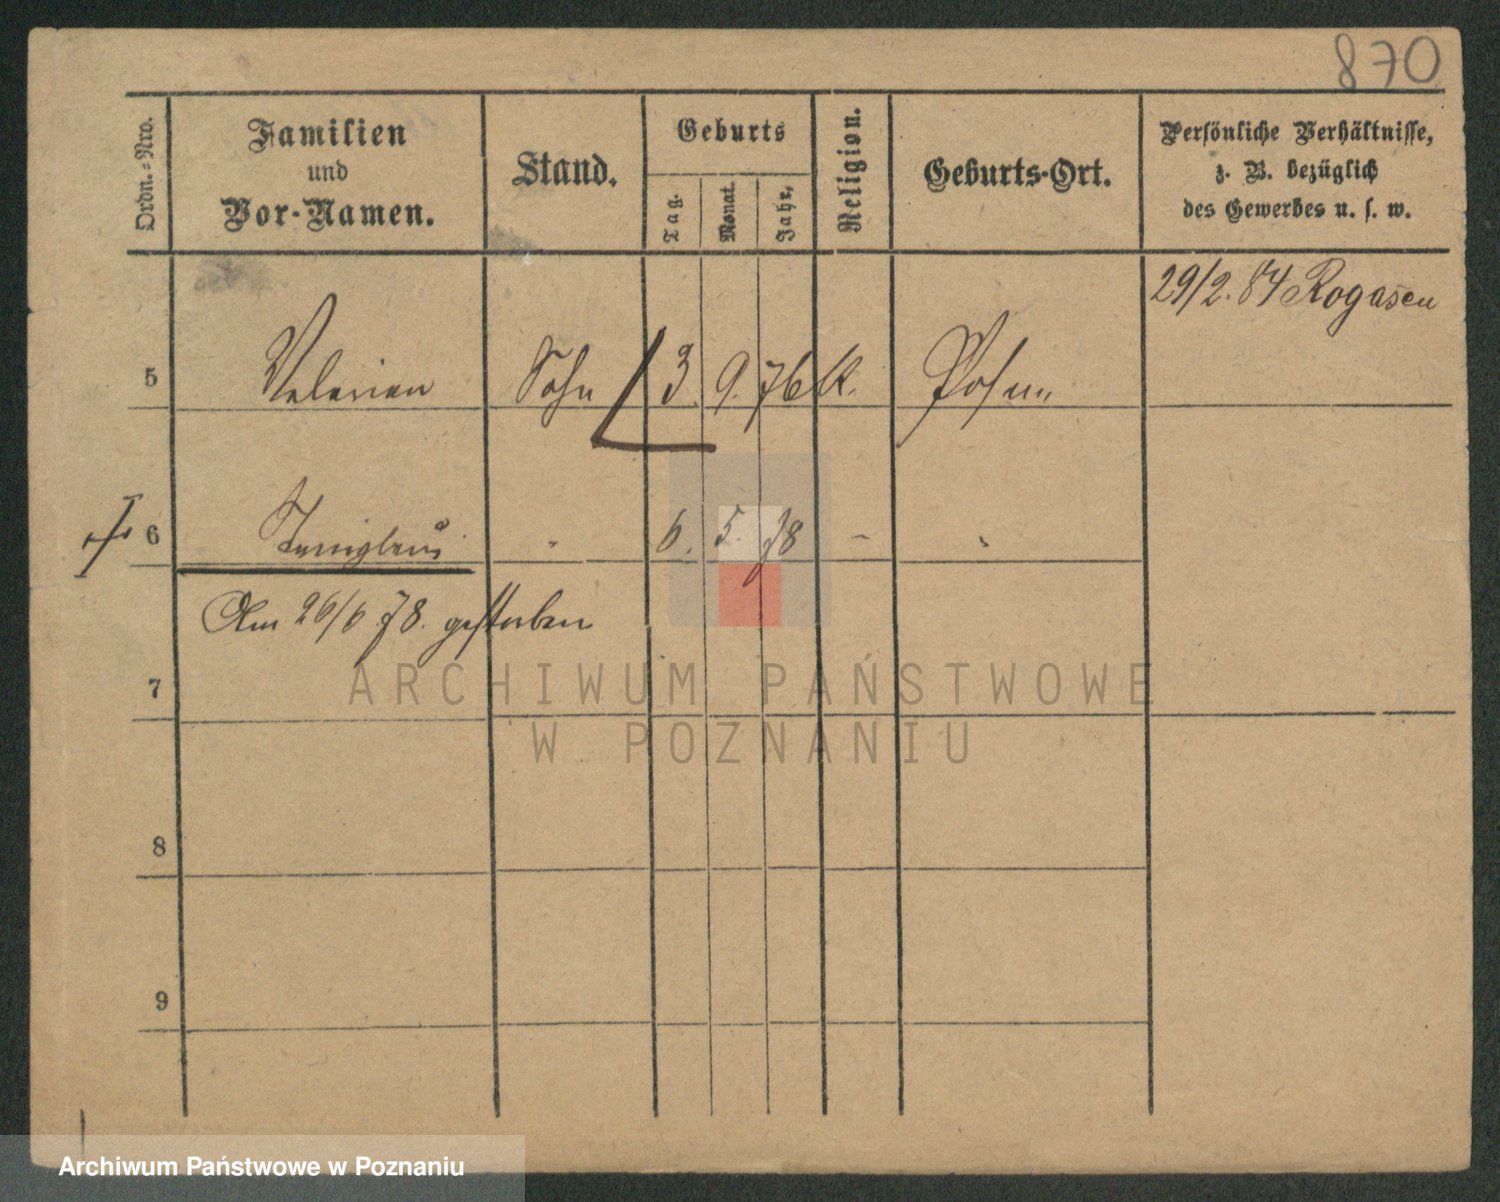 870
Ordn.-Nro.
Familien
und
Vor-Namen.
Stand.
Geburts
Tag.
Monat.
Jahr.
Religion.
Geburts-Ort.
Persönliche Verhältnisse,
z. B. bezüglich
des Gewerbes u. s. w.
29/2. 84 Rogasen
5 Valerian Sohn 3. 9. 76 k. Posen
6 " 6. 5. 78 - "
Am 26/6 78. gestorben
7
8
9
ARCHIWUM PAŃSTWOWE
W POZNANIU
Archiwum Państwowe w Poznaniu